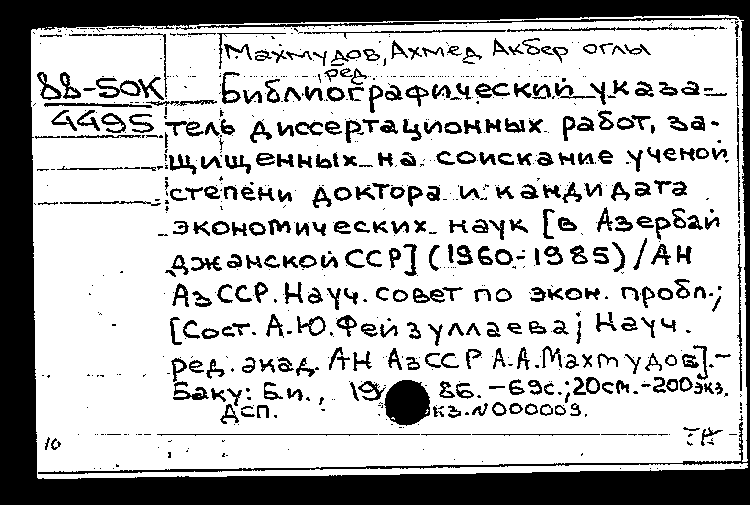 Махмудов, Ахмед Акбер оглы
ред.
88-50К
Библиографический указа-
4495
тель диссертационных работ, за-
щищенных на соискание ученой
степени доктора и кандидата
экономических наук [в Азербай
джанской ССР] (1960-1985) / АН
АзССР. Науч. совет по экон. пробл.;
[Сост. А.Ю. Фейзуллаева; Науч.
ред. акад. АН АзССР А.А. Махмудов]. –
Баку: Б.и., 1986. – 69с.; 20см. – 200экз.
Дсп. кз. N000009.
10